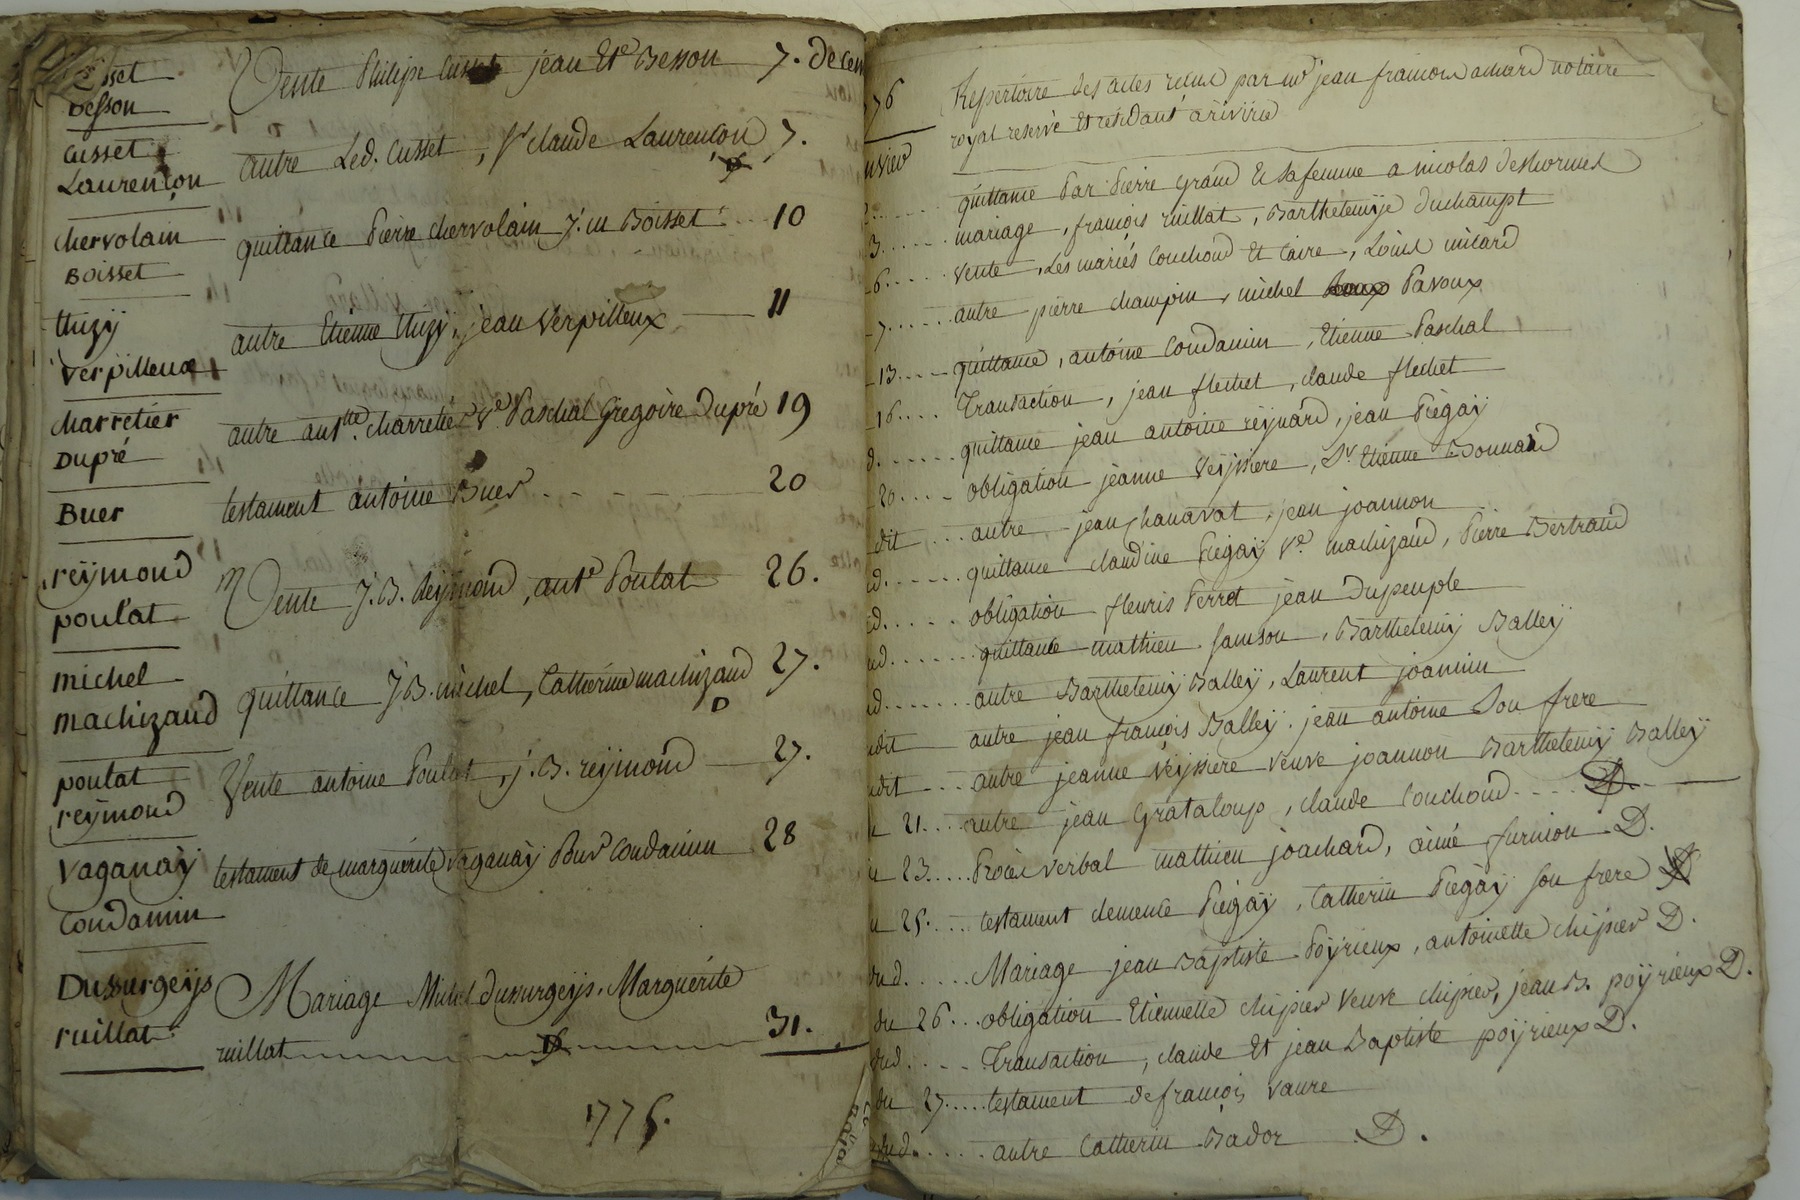 Cusset
Besson
Vente Philipe Cusset jean Et.e Besson 7. decem
Cusset
Laurençon
autre Led. Cusset, Sr claude Laurençon 7.
chervolain
Boisset
quittance Pierre chervolain J. m Boisset 10
thizy
verpilleux
autre Etienne thizy, jean Verpilleux 11
charretier
Dupré
autre ant.tte charretier Ve Paschal Gregoire Dupré 19
Buer
testament antoine Buer 20
reÿmond
poulat
Vente J. B. Reÿmond, ant.e Poulat 26.
michel
machizaud
quittance J. B. michel, Catherine machizaud 27.
D
poulat
reÿmond
Vente antoine Poulat, j. B. reÿmond 27.
Vaganaÿ
Condamin
testament de marguérite vaganaÿ Pour Condamin 28
Dussurgeÿs
ruillat
Mariage Michel dussurgeÿs, Marguérite
ruillat 31.
1775.
76
Repertoire des actes recus par me jean francois achard notaire
royal reservé et residant a riviried
nvier
2 quittance Par Pierre grand et sa femme a nicolas deshormes
3 mariage, francois ruillat, Barthelemÿe duchampt
6 vente, les mariés Couchoud et Caire, Louis micard
7 autre pierre champin, michel Pavoux
13 quittance, antoine Condamin, Etienne Paschal
16 Transaction, jean flechet, claude flechet
d. quittance jean antoine reÿnard, jean Piégaÿ
20 obligation jeanne Veÿssiere, Sr Etienne Bonnard
dit autre jean chanavat, jean joannon
ud. quittance claudine Piégaÿ Ve machizaud, Pierre Bertrand
ud. obligation fleuris Perrot jean Dupeuple
ud. quittance mathieu samson, Barthelemÿ Balleÿ
ud. autre Barthelemÿ Balleÿ, Laurent joannin
udit autre jean francois Balleÿ, jean antoine Son frere
udit autre jeanne Veÿssiere veuve joannon Barthelemÿ Balleÿ
u 21. autre jean Grataloup, claude Couchoud D.
u 23. Procès verbal mathieu joachard, aimé furnion D.
u 25. testament clemence Piégaÿ, Catherin Piégaÿ son frere
dud. Mariage jean Baptiste Poÿrieux, antoinette chipier D.
du 26. obligation Etiennette chipier veuve chipier, jean B. poÿrieux D.
dud. Transaction, claude Et jean Baptiste poÿrieux D.
du 27. testament de francois vaure
dud. autre Catherin Bador D.